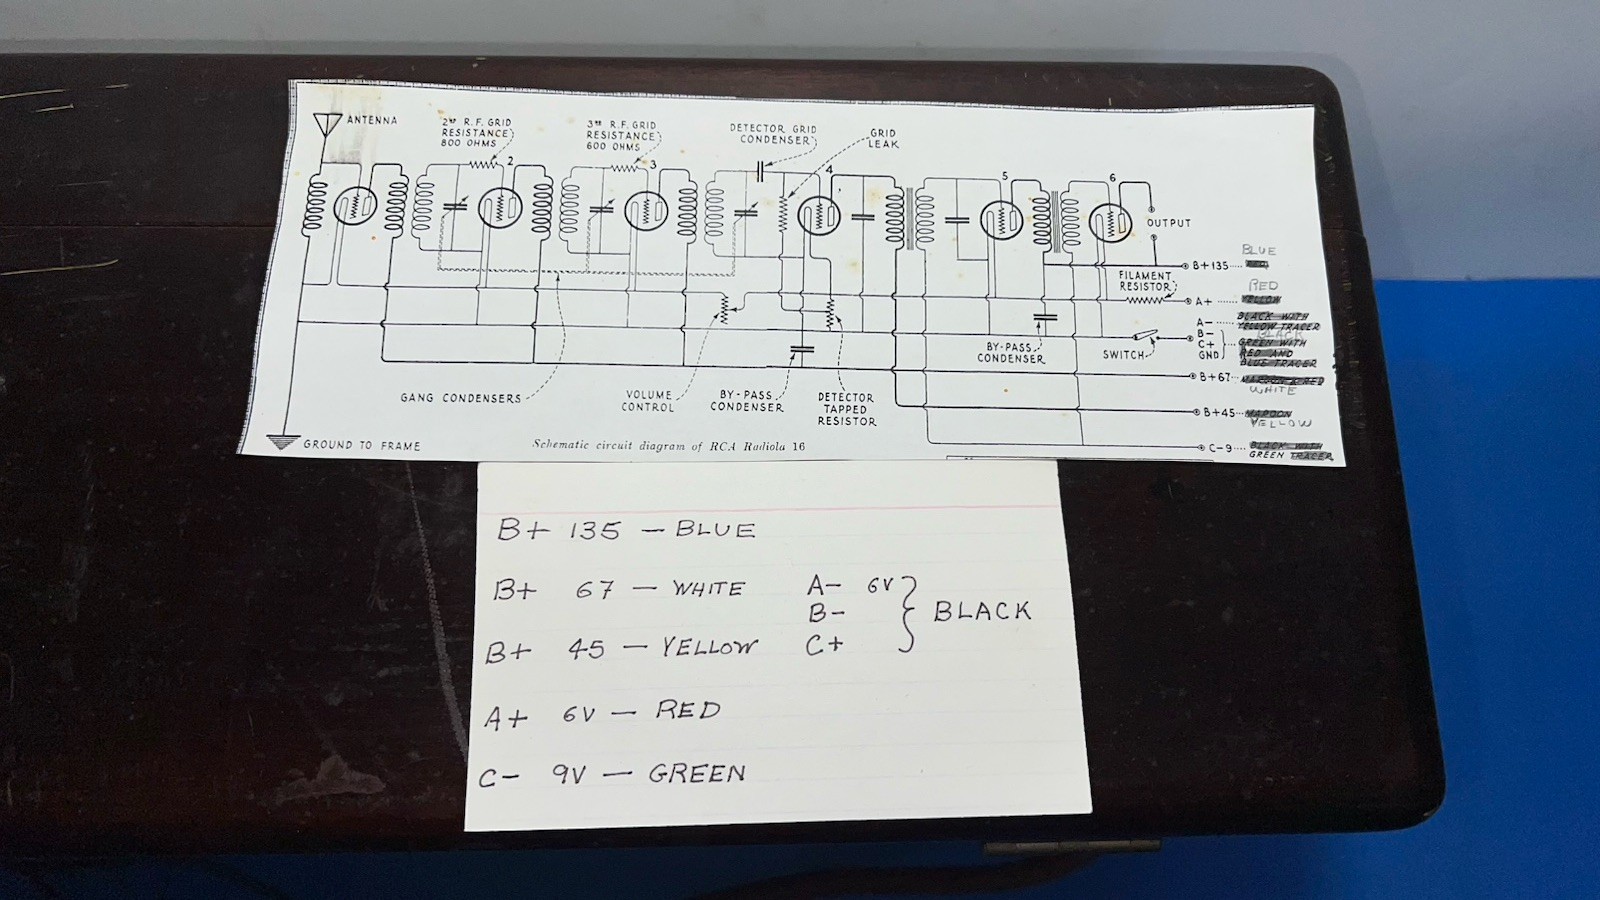 ANTENNA
2ND R.F. GRID
RESISTANCE
800 OHMS
2
3RD R.F. GRID
RESISTANCE
600 OHMS
3
DETECTOR GRID
CONDENSER
GRID
LEAK
4
5
6
OUTPUT
BLUE
B+135
RED
FILAMENT
RESISTOR
A+ YELLOW
A- BLACK WITH
YELLOW TRACER
B- BLACK
C+ GREEN WITH
RED AND
GND BLUE TRACER
SWITCH
BY-PASS
CONDENSER
B+67 MAROON & RED
WHITE
B+45 MAROON
YELLOW
C-9 BLACK WITH
GREEN TRACER
GANG CONDENSERS
VOLUME
CONTROL
BY-PASS
CONDENSER
DETECTOR
TAPPED
RESISTOR
GROUND TO FRAME
Schematic circuit diagram of RCA Radiola 16
B+ 135 — BLUE
B+ 67 — WHITE
B+ 45 — YELLOW
A+ 6V — RED
C- 9V — GREEN
A- 6V
B-
C+
BLACK